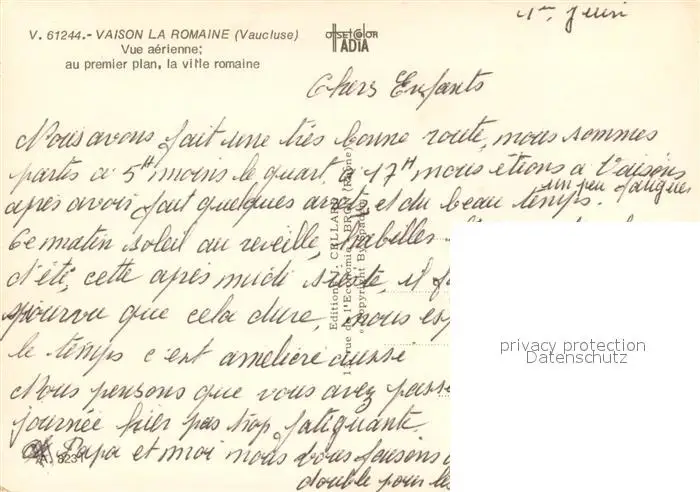 1er Juin
V. 61244.- VAISON LA ROMAINE (Vaucluse)
Vue aérienne;
au premier plan, la ville romaine
OFFSET COLOR
IADIA
Chers Enfants
Nous avons fait une très bonne route, nous sommes
partis à 5H moins le quart, à 17H nous étions à Vaison
un peu fatigués
après avoir fait quelques arrêts et du beau temps.
Ce matin soleil au réveil, habilles
d'été, cette après midi sieste, il f
pourvu que cela dure, nous esp
le temps c'est amélioré aussi
Nous pensons que vous avez passé
journée hier pas trop fatiguante.
Papa et moi nous vous faisons
double pour les
A. 8231
Editions J. CELLARD
rue de l'Economie, BRON (Rhône)
Copyright By
privacy protection
Datenschutz